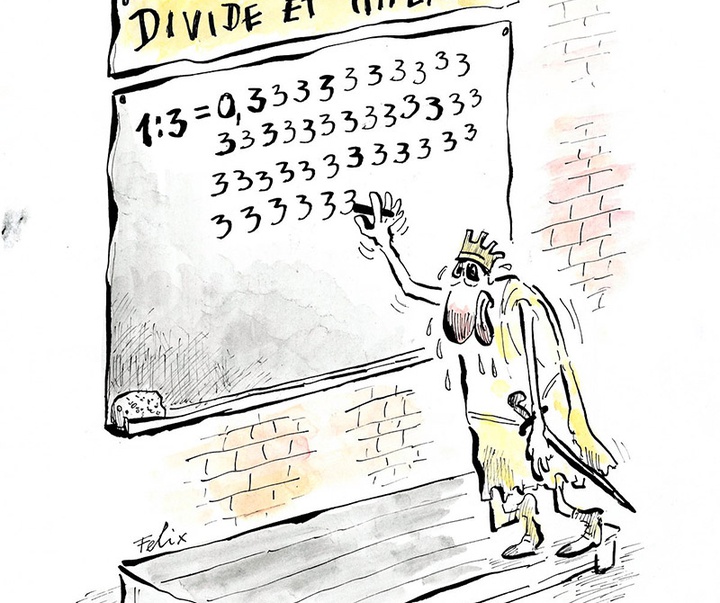 DIVIDE ET
1:3=0,3333333333
3333333333333
333333333333
3333333
Felix